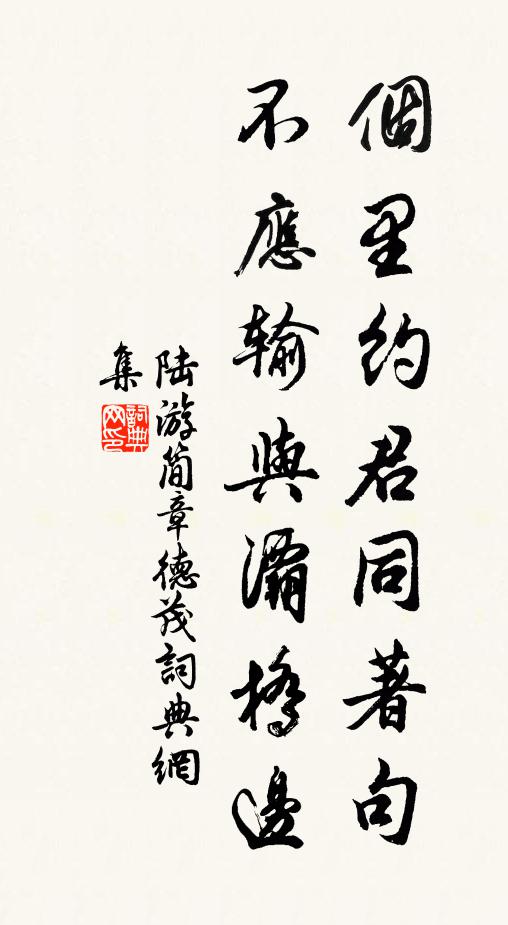 個里約君同著句
不應輸與灞橋邊
陸游簡章德茂詞典網
集
詞典
网印